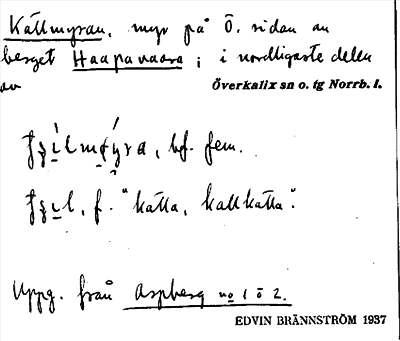 Källmyran, myr på Ö. sidan av
berget Haapavaara; i nordligaste delen
av Överkalix sn o. tg Norrb. l.
bf. fem.
f. "källa, kallkälla".
Uppg. från Aspberg no 1 o 2.
EDVIN BRÄNNSTRÖM 1937